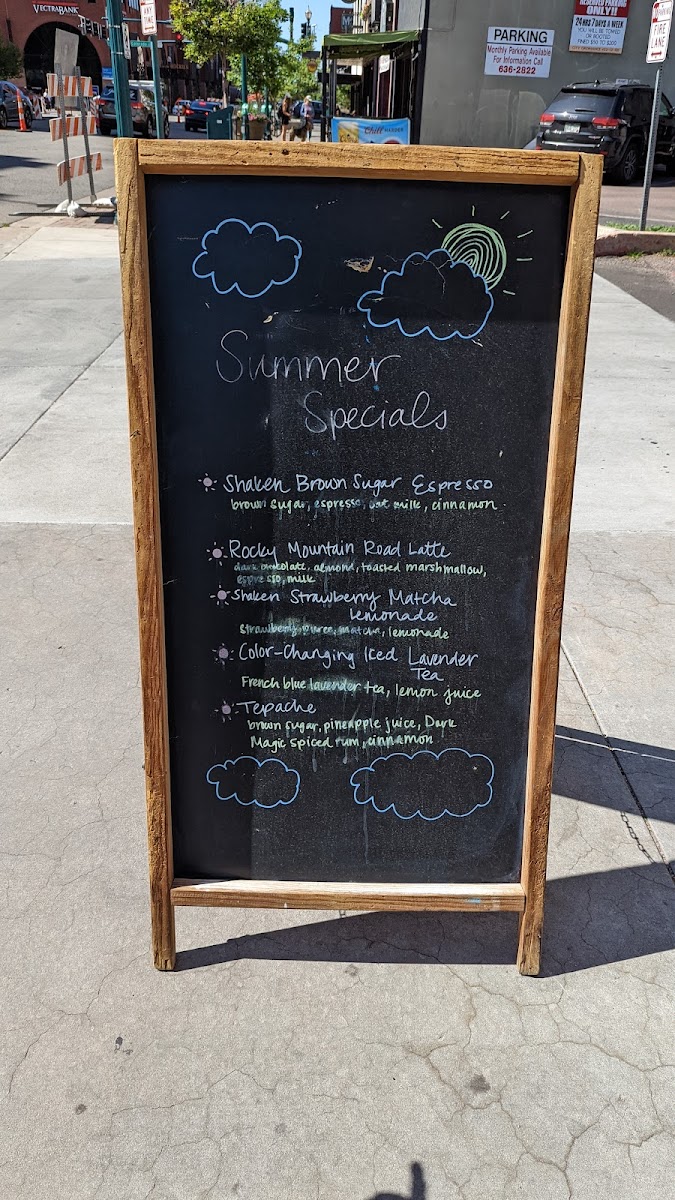 VECTRABANK
PARKING
Monthly Parking Available
For Information Call
636-2822
RESERVED PARKING
ONLY!
24 HRS 7 DAYS A WEEK
FIRE
LANE
Chill
Summer
Specials
Shaken Brown Sugar Espresso
brown sugar, espresso, oat milk, cinnamon
Rocky Mountain Road Latte
dark chocolate, almond, toasted marshmallow,
espresso, milk
Shaken Strawberry Matcha
Lemonade
Strawberry puree, matcha, lemonade
Color-Changing Iced Lavender
Tea
French blue lavender tea, lemon juice
Tepache
brown sugar, pineapple juice, Dark
Magic spiced rum, cinnamon